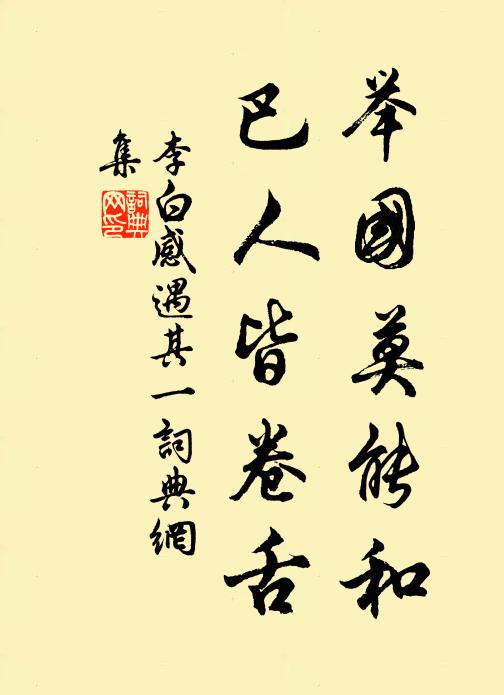 举國莫能和
巴人皆卷舌
李白感遇其一詞典網
集
詞典
网印